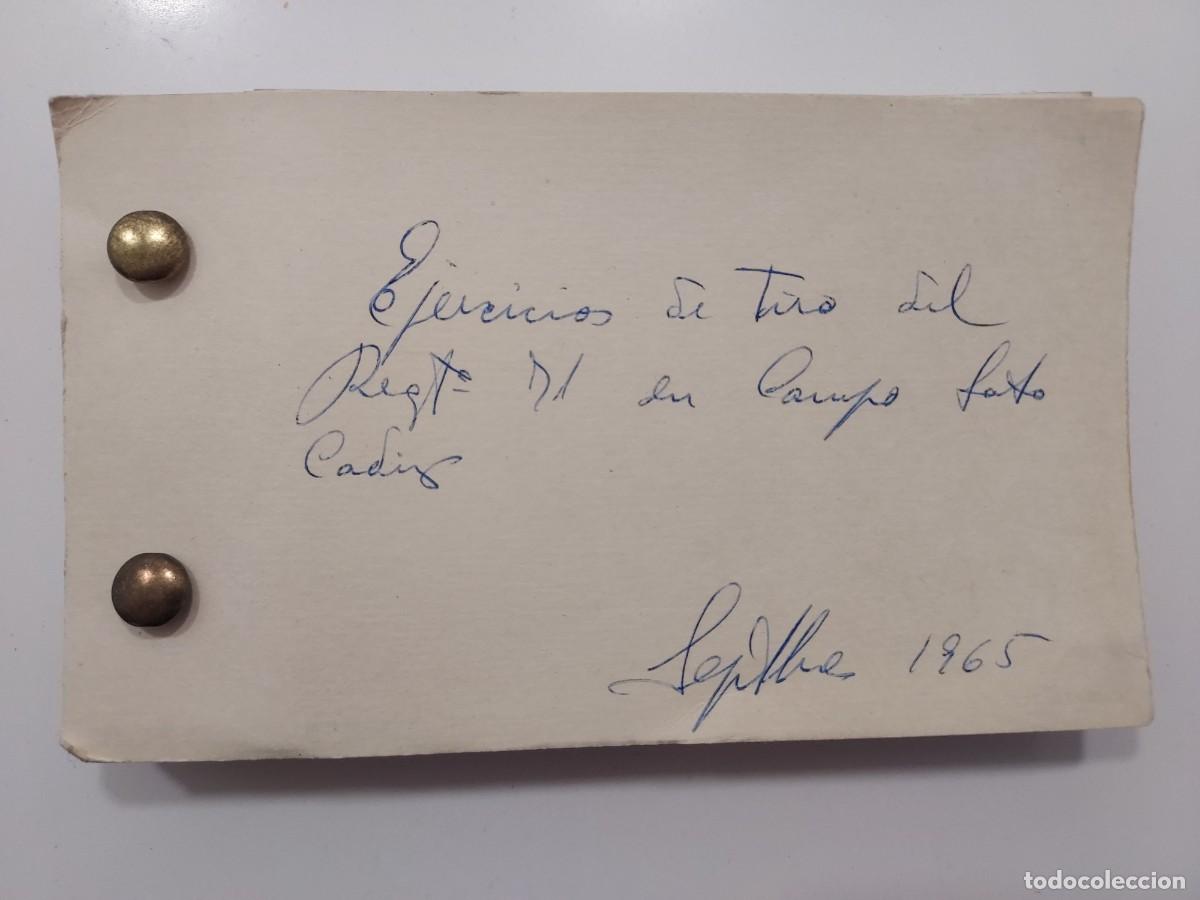 Ejercicios de tiro del
Regtº 71 en Campo Soto
Cadiz
Septbre 1965
todocoleccion